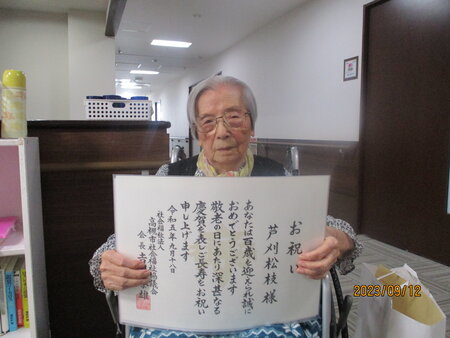 お祝い
芦刈松枝様
あなたは百歳を迎えられ誠に
おめでとうございます
敬老の日にあたり深甚なる
慶賀を表しご長寿をお祝い
申し上げます
令和五年九月十八日
社会福祉法人
高槻市社会福祉協議会
会長
2023/09/12